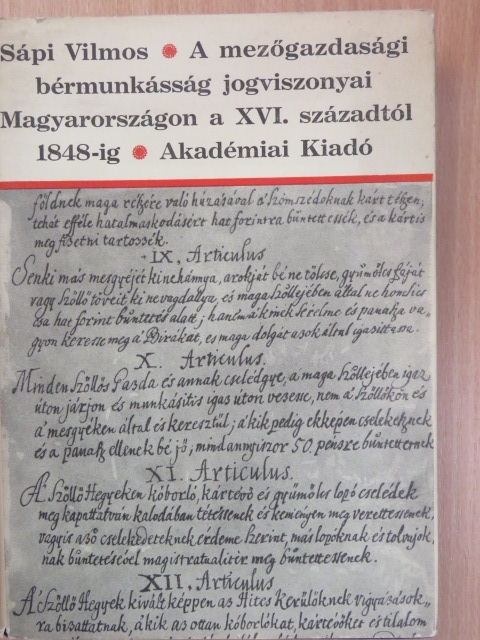 Sápi Vilmos A mezőgazdasági
bérmunkásság jogviszonyai
Magyarországon a XVI. századtól
1848-ig Akadémiai Kiadó
földnek maga részére való húzásával a' Szomszédoknak kárt tészen,
tehát efféle hatalmaskodásért hat forintra büntettessék, és a kártis
meg fizetni tartossék.
IX. Articulus
Senki más mesgyéjét ki ne hánnya, árokját bé ne töltse, gyümölts fáját
vagy Szőllő töveit ki ne vagdallya, és maga Szőllejében által ne hordics
csa hat forint büntetés alatt; hanem a' kinek sérelme és panasza va-
gyon keresse meg a' Birákat, és maga dolgát azok által igasittassa.
X. Articulus.
Minden Szőllős Gazda és annak cselédgye, a maga Szőllejében igaz
úton járjon és munkásitis igas úton vezesse, nem a' Szőllőkön és
a' mesgyéken által és keresztűl; a' kik pedig ekképen cselekesznek
és a panasz ellenek bé jő; mindannyiszor 50. pénzre büntettetnek
XI. Articulus.
A' Szőllő Hegyeken kóborló, kártévő és gyümölts lopó cselédek
meg kapattatván kalodában tétessenek és keményen meg verettessenek,
vagyis a' ső cselekedeteknek érdeme szerint, más lopóknak és tolvajok,
nak büntetésével magistratualiter meg büntettessenek.
XII. Articulus
A' Szőllő Hegyek kiváltképpen az Hites Kerülőknek vigyázások,,
ra bizattatnak, a' kik az ottan kóborlókat, kártévőket és tilalom